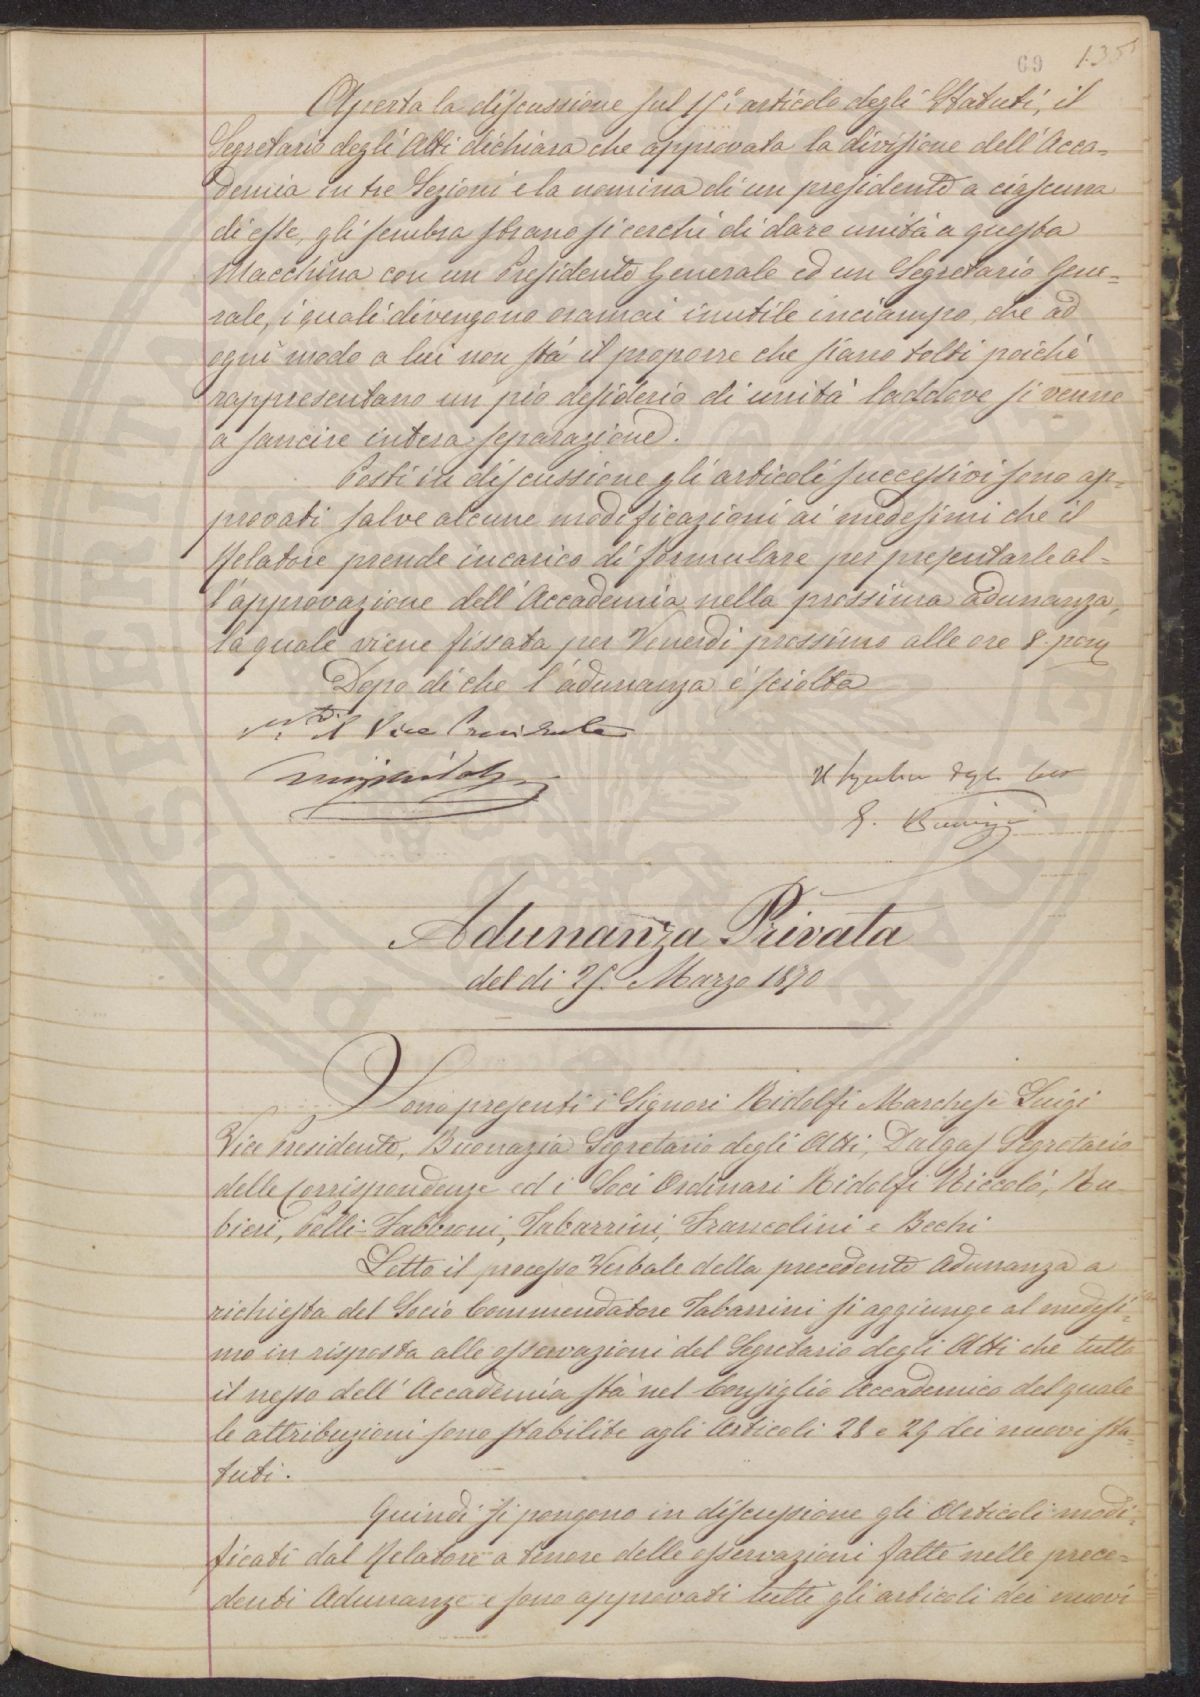 69 135
Aperta la discussione sul 15º articolo degli Statuti, il
Segretario degli Atti dichiara che approvata la divisione dell'Acca-
demia in tre Sezioni e la nomina di un presidente a ciascuna
di esse, gli sembra strano si cerchi di dare unità a questa
Macchina con un Presidente Generale ed un Segretario Gene-
rale, i quali divengono oramai inutile inciampo, che ad
ogni modo a lui non stà il proporre che siano tolti poiché
rappresentano un pio desiderio di unità laddove si venne
a sancire intera separazione.
Posti in discussione gli articoli successivi sono ap-
provati salve alcune modificazioni ai medesimi che il
Relatore prende incarico di formulare per presentarle al-
l'approvazione dell'Accademia nella prossima adunanza,
la quale viene fissata per Venerdì prossimo alle ore 8. pom
Dopo di che l'adunanza è sciolta
Il Vice Presidente
Il Segretario degli Atti
Adunanza Privata
del dì 25. Marzo 1870
Sono presenti i Signori Ridolfi Marchese Luigi
Vice Presidente, Buonazia Segretario degli Atti, Dalgas Segretario
delle Corrispondenze ed i Soci Ordinari Ridolfi Niccolò, Ru-
bieri, Pelli-Fabbroni, Tabarrini, Francolini e Bechi
Letto il processo Verbale della precedente Adunanza a
richiesta del Socio Commendatore Tabarrini si aggiunge al medesi-
mo in risposta alle osservazioni del Segretario degli Atti che tutto
il nesso dell'Accademia stà nel Consiglio Accademico del quale
le attribuzioni sono stabilite agli Articoli 28 e 29 dei nuovi sta-
tuti.
Quindi si pongono in discussione gli Articoli modi-
ficati dal Relatore a tenore delle osservazioni fatte nelle prece-
denti Adunanze e sono approvati tutti gli articoli dei nuovi